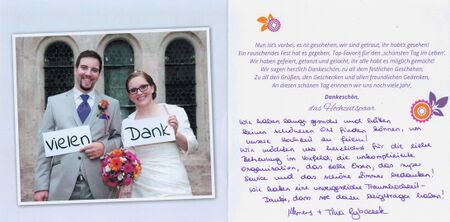 Vielen
Dank
Nun ist's vorbei, es ist geschehen, wir sind getraut, ihr habt's gesehen!
Ein rauschendes Fest hat es gegeben, Top-Favorit für den ‚schönsten Tag im Leben'.
Wir haben gefeiert, getanzt und gelacht, ihr alle habt es möglich gemacht!
Wir sagen herzlich Dankeschön, zu all dem festlichen Geschehen;
Zu all den Grüßen, den Geschenken und allen freundlichen Gedanken,
An diesen schönen Tag erinnern wir uns noch viele Jahr,
Dankeschön,
das Hochzeitspaar
Wir haben lange gesucht und hätten
keinen schöneren Ort finden können, um
unsere Hochzeit zu feiern!
Wir möchten uns herzlichst für die liebe
Betreuung im Vorfeld, die unkomplizierte
Organisation, das tolle Essen, das super
Service und das schöne Zimmer bedanken!
Wir hatten eine unvergessliche Traumhochzeit -
Danke, dass sie dazu beigetragen haben!
+ Tina